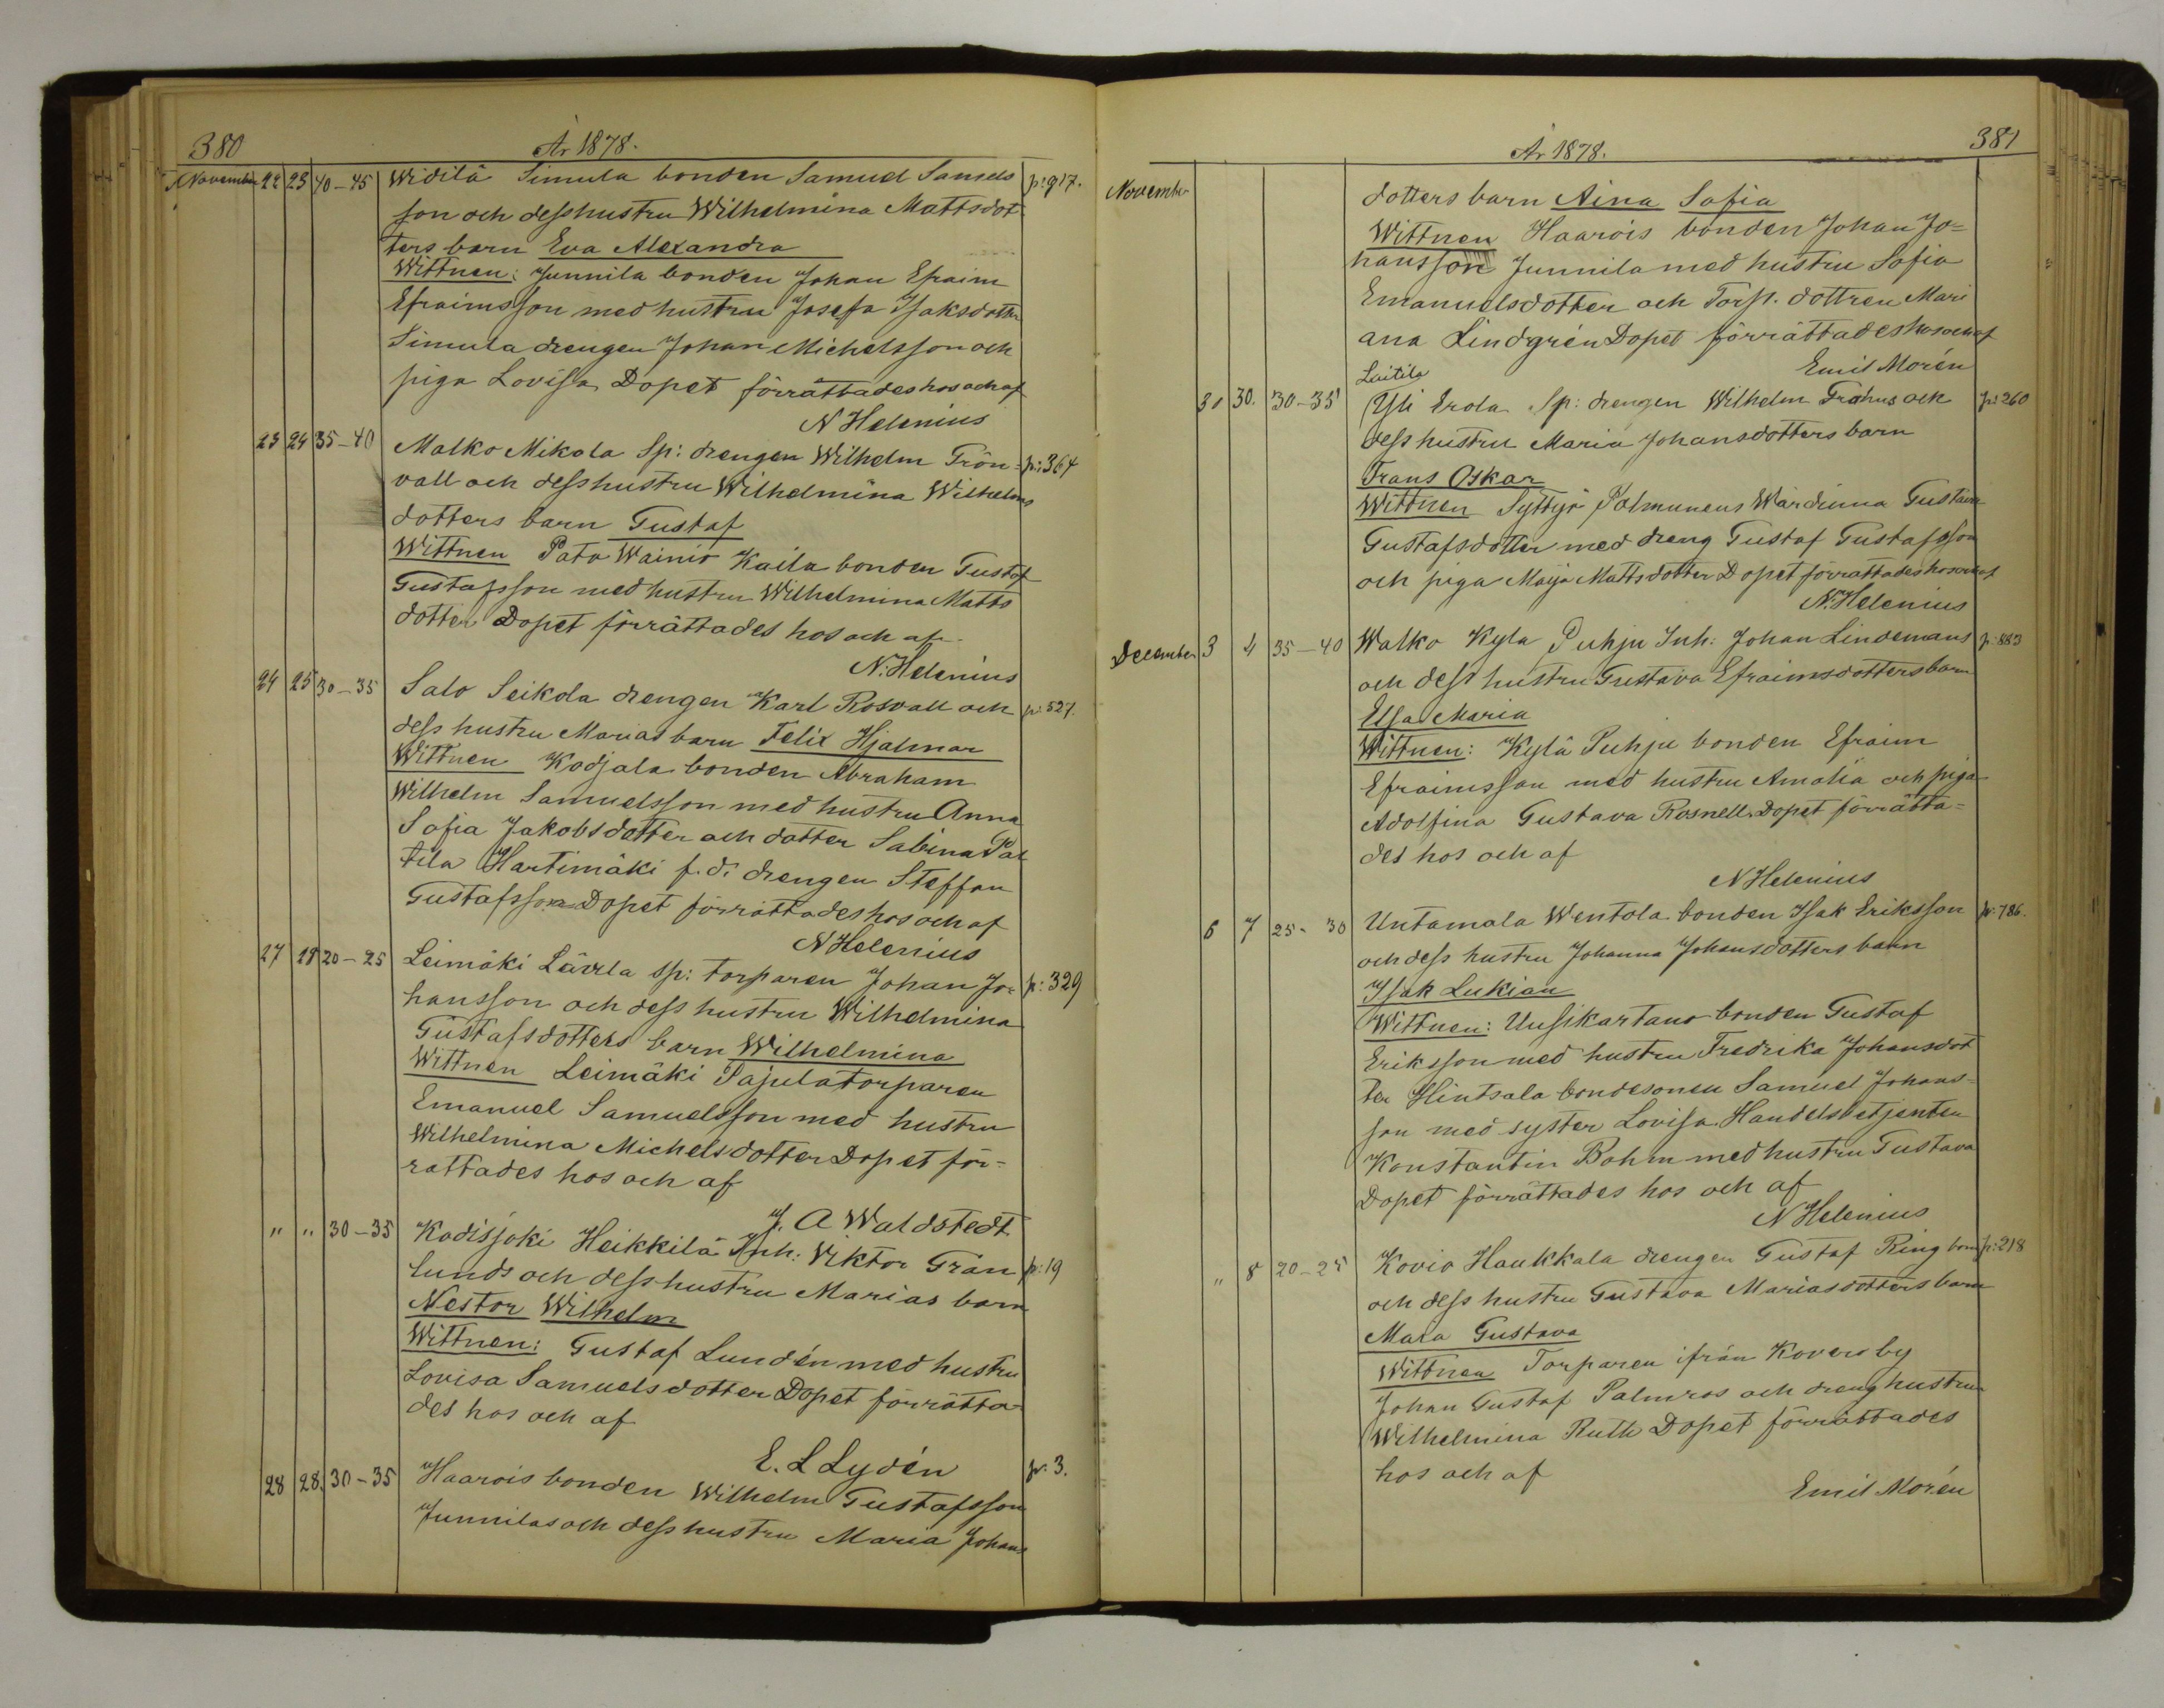 380
År 1878.
November 22 23 40-45 Widilä Simula bonden Samuel Samuels p: 917.
son och dess hustru Wilhelmina Mattsdot
ters barn Eva Alexandra
Wittnen: Junnila bonden Johan Efraim
Efraimsson med hustru Josefa Isaksdotter
Simula drengen Johan Michelsson och
piga Lovisa Dopet förrättades hos och af
N Helenius
23 24 35-40 Malko Mikola Sp: drengen Wilhelm Grön- p: 364
vall och dess hustru Wilhelmina Wilhelms
dotters barn Gustaf
Wittnen Pato Wainio Kaila bonden Gustaf
Gustafsson med hustru Wilhelmina Matts
dotter Dopet förrättades hos och af
N. Helenius
24 25 30-35 Salo Seikola drengen Karl Rosvall och p: 527.
dess hustru Marias barn Felix Hjalmar
Wittnen Kodjala bonden Abraham
Wilhelm Samuelsson med hustru Anna
Sofia Jakobsdotter och dotter Sabina Pal
tila Hartimäki f.d. drengen Steffan
Gustafsson Dopet förrättades hos och af
N Helenius
27 28 20-25 Leimäki Lävila sp: torparen Johan Jo- p: 329
hansson och dess hustru Wilhelmina
Gustafsdotters barn Wilhelmina
Wittnen Leimäki Pajula torparen
Emanuel Samuelsson med hustru
Wilhelmina Michelsdotter Dopet för-
rättades hos och af
J. A Waldstedt
" " 30-35 Kodisjoki Heikkilä Inh. Viktor Grän p: 19
lunds och dess hustru Marias barn
Nestor Wilhelm
Wittnen: Gustaf Lundén med hustru
Lovisa Samuelsdotter Dopet förrätta
des hos och af
E. L Lydén
28 28. 30-35 Haarois bonden Wilhelm Gustafsson p: 3.
Junnilas och dess hustru Maria Johans
381
År 1878.
November
dotters barn Aina Sofia
Wittnen Haarois bonden Johan Jo=
hansson Junnila med hustru Sofia
Emanuelsdotter och Torp. dottren Mari
ana Lindgrén Dopet förrättades hos och af
Emil Morén
Laitila
30 30. 30-35 Yli Erola Sp: drengen Wilhelm Fröhus och p: 260
dess hustru Maria Johansdotters barn
Frans Oskar
Wittnen Syttyä Palmunens Wärdinna Gustava
Gustafsdotter med dreng Gustaf Gustafsson
och piga Maija Mattsdotter Dopet förrättades hos och af
N. Helenius
December 3 4 35-40 Walko Kyla Puhju Inh: Johan Lindemans p: 883
och dess hustru Gustava Efraimsdotters barn
Elsa Maria
Wittnen: Kylä Puhju bonden Efraim
Efraimsson med hustru Amalia och piga
Adolfina Gustava Rosnell. Dopet förrätta=
des hos och af
N Helenius
6 7 25-30 Untamala Wentola bonden Isak Eriksson p: 786.
och dess hustru Johanna Johansdotters barn
Isak Lukian
Wittnen: Uusikartano bonden Gustaf
Eriksson med hustru Fredrika Johansdot
ter Hintsala bondesonen Samuel Johans-
son med syster Lovisa Handelsbetjenten
Konstantin Bohm med hustru Gustava
Dopet förrättades hos och af
N Helenius
" 8 20-25 Kovio Haukkala drengen Gustaf Ringbom p: 218
och dess hustru Gustava Mariasdotters barn
Maria Gustava
Wittnen Torparen ifrån Koveroby
Johan Gustaf Palmros och dreng hustrun
Wilhelmina Ruth Dopet förrättades
hos och af
Emil Morén